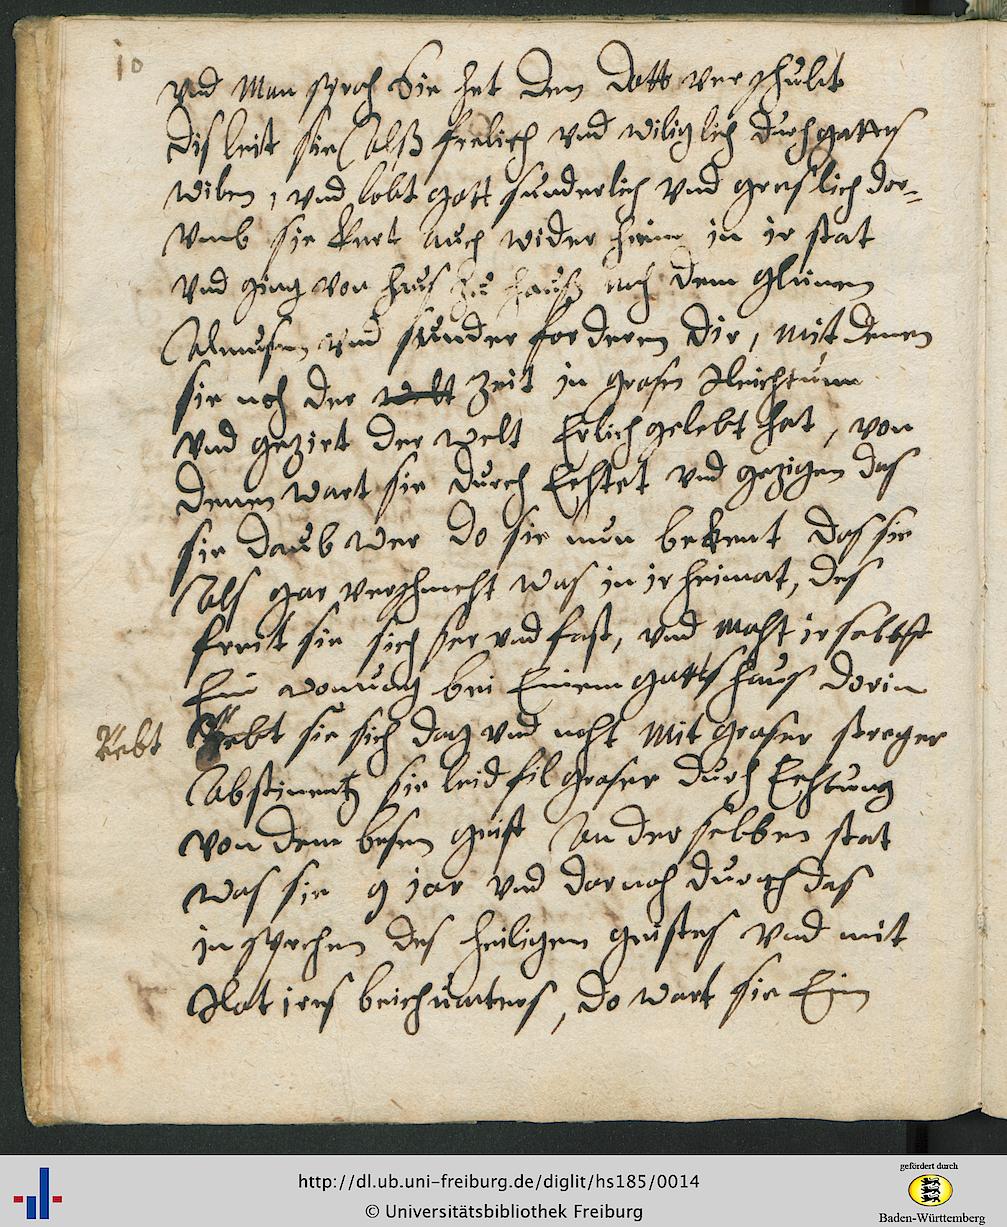 10
vnd Man sprach Sie het den Dott verschult
Dis leit sie Alß frelich vnd wiliglich durch gottes
wiben, vnd lobt gott sunderlich vnd greslich dor-
vmb sie kert auch wider heim in ir stat
vnd ging von haus zu hauß noch dem
Almusen vnd sunder fordern Die, mit denen
sie noch der welt Zeit in grosen Reichtum
vnd gezirt der welt Erlich gelebt hat, von
denen wart sie durch Echtet vnd gezigen das
sie daub wer do sie nun bekent das sie
Als gar verschmeht was in ir heimat, des
freit sie sich ser vnd fast, vnd maht ir selbst
Ein wonung bei Einem gottshaus dorin
Kebt
sie sich dag vnd noht mit groser streger
Abstinentz sie leid fil groser durch Echtung
von dem besen geist An der selben stat
was sie 9 ior vnd dornoh durch das
in sprechen des heiligen geistes vnd mit
Rat ires beichuatters, do wart sie Ein
http://dl.ub.uni-freiburg.de/diglit/hs185/0014
© Universitätsbibliothek Freiburg
gefördert durch
Baden-Württemberg